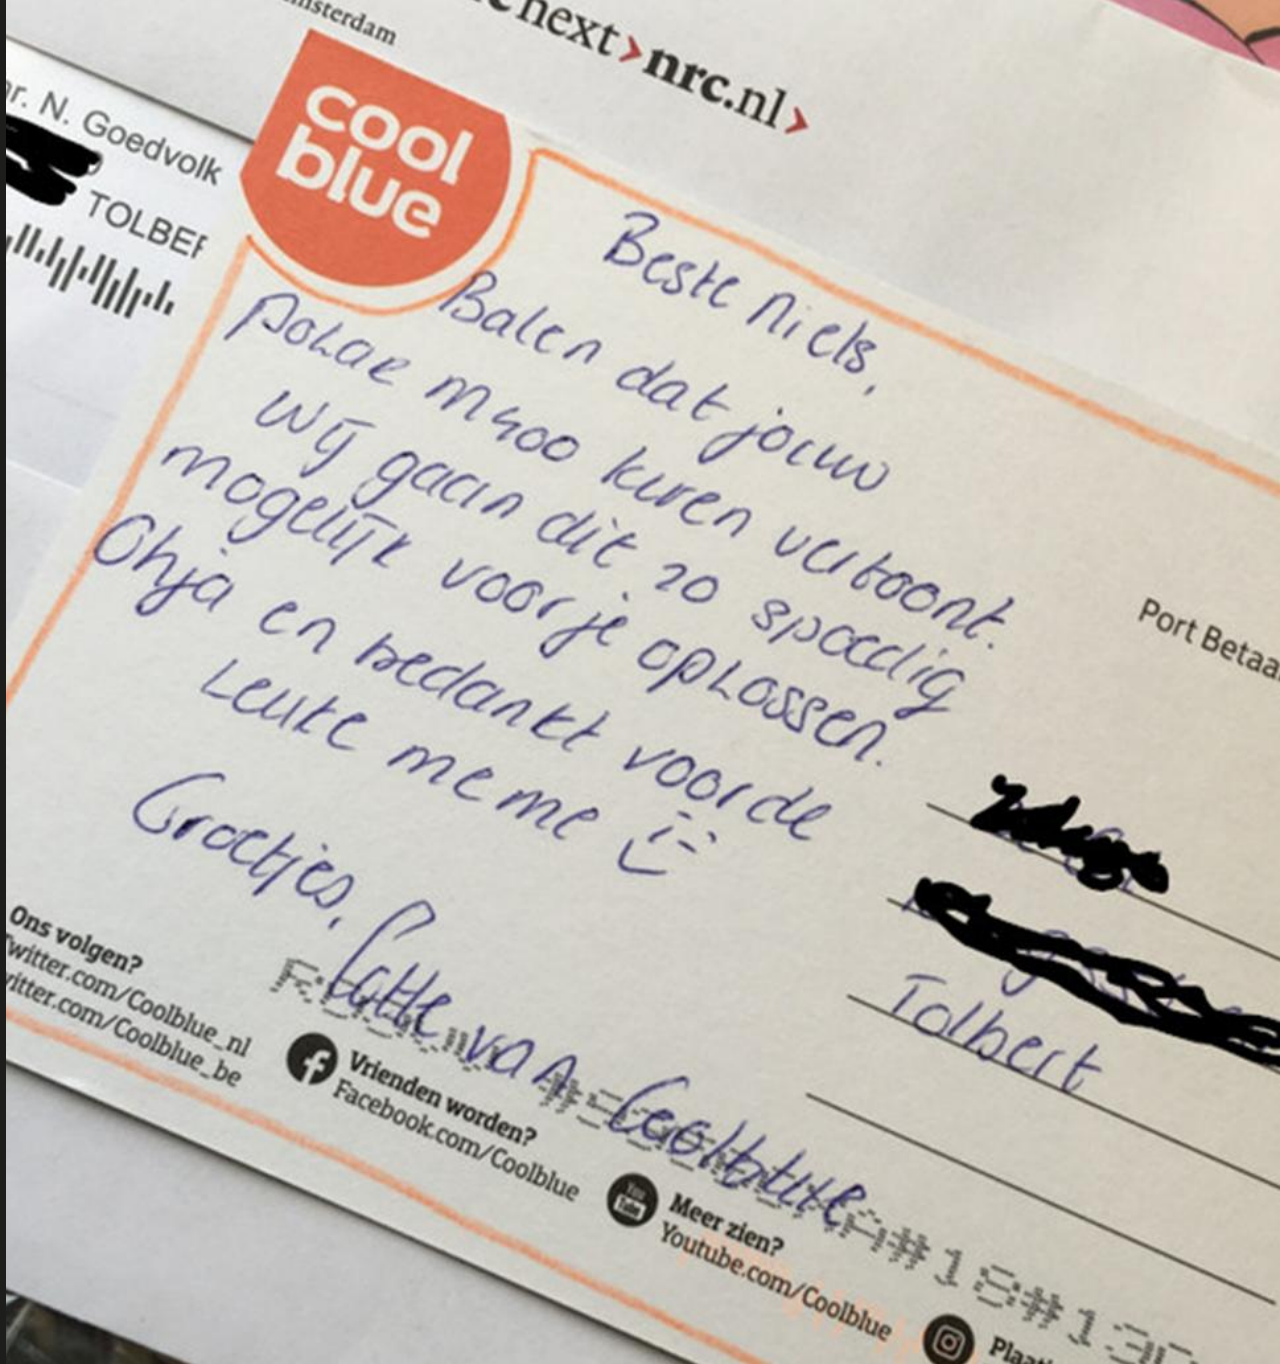 nsterdam
next>nrc.nl>
r. N. Goedvolk
TOLBER
cool
blue
Beste Niels,
Balen dat jouw
Polar M400 kuren vertoont.
Wij gaan dit zo spoedig
mogelijk voor je oplossen.
Ohja en bedankt voor de
Leuke meme
Groetjes,
van Coolblue
Port Betaa
Tolbert
Ons volgen?
Twitter.com/Coolblue_nl
witter.com/Coolblue_be
Vrienden worden?
Facebook.com/Coolblue
You
Tube
Meer zien?
Youtube.com/Coolblue
Plaat